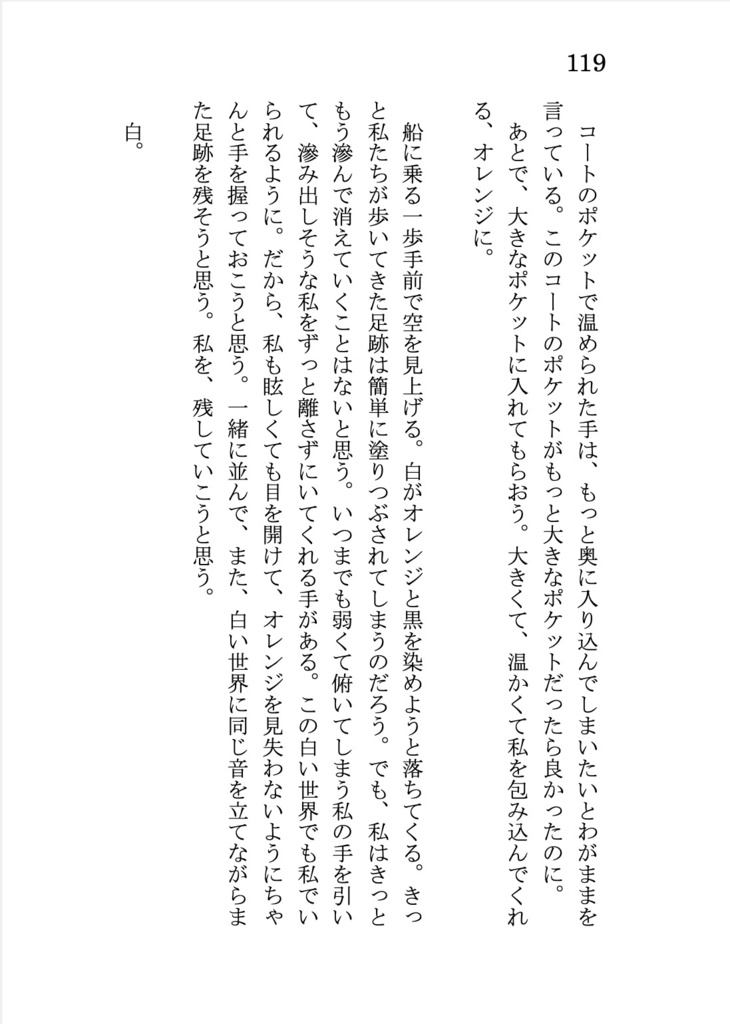 119
コートのポケットで温められた手は、もっと奥に入り込んでしまいたいとわがままを
言っている。このコートのポケットがもっと大きなポケットだったら良かったのに。
あとで、大きなポケットに入れてもらおう。大きくて、温かくて私を包み込んでくれ
る、オレンジに。
船に乗る一歩手前で空を見上げる。白がオレンジと黒を染めようと落ちてくる。きっ
と私たちが歩いてきた足跡は簡単に塗りつぶされてしまうのだろう。でも、私はきっと
もう滲んで消えていくことはないと思う。いつまでも弱くて俯いてしまう私の手を引い
て、滲み出しそうな私をずっと離さずにいてくれる手がある。この白い世界でも私でい
られるように。だから、私も眩しくても目を開けて、オレンジを見失わないようにちゃ
んと手を握っておこうと思う。一緒に並んで、また、白い世界に同じ音を立てながらま
た足跡を残そうと思う。私を、残していこうと思う。
白。